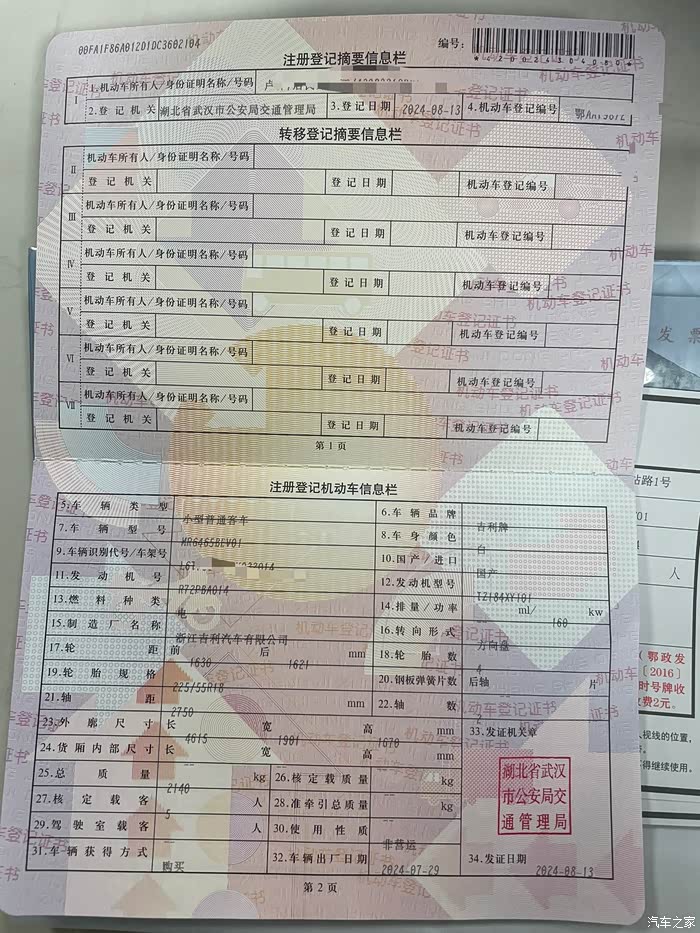 00FA1F86A012D1DC3602104
编号:
注册登记摘要信息栏
Ⅰ 1.机动车所有人/身份证明名称/号码 卢
2.登记机关 湖北省武汉市公安局交通管理局 3.登记日期 2024-08-13 4.机动车登记编号
转移登记摘要信息栏
Ⅱ 机动车所有人/身份证明名称/号码
登记机关 登记日期 机动车登记编号
Ⅲ 机动车所有人/身份证明名称/号码
登记机关 登记日期 机动车登记编号
Ⅳ 机动车所有人/身份证明名称/号码
登记机关 登记日期 机动车登记编号
Ⅴ 机动车所有人/身份证明名称/号码
登记机关 登记日期 机动车登记编号
Ⅵ 机动车所有人/身份证明名称/号码
登记机关 登记日期 机动车登记编号
Ⅶ 机动车所有人/身份证明名称/号码
登记机关 登记日期 机动车登记编号
第 1 页
注册登记机动车信息栏
5.车辆类型 小型普通客车 6.车辆品牌 吉利牌
7.车辆型号 MR6465BEV01 8.车身颜色 白
9.车辆识别代号/车架号 10.国产/进口 国产
11.发动机号 R72PBA014 12.发动机型号 TZ184XY101
13.燃料种类 电 14.排量/功率 ml/ 160 kw
15.制造厂名称 浙江吉利汽车有限公司 16.转向形式 方向盘
17.轮距 前 1630 后 1621 mm 18.轮胎数 4
19.轮胎规格 225/55R18 20.钢板弹簧片数 后轴 片
21.轴距 2750 mm 22.轴数 2
23.外廓尺寸 长 4615 宽 1901 高 1670 mm 33.发证机关章
24.货厢内部尺寸 长 宽 高 mm
25.总质量 2140 kg 26.核定载质量 kg
27.核定载客 5 人 28.准牵引总质量 kg
29.驾驶室载客 人 30.使用性质 非营运
31.车辆获得方式 购买 32.车辆出厂日期 2024-07-29 34.发证日期 2024-08-13
湖北省武汉
市公安局交
通管理局
第 2 页
发票
站路1号
人
（鄂政发
〔2016〕
时号牌收
费2元。
视线的位置，
得继续使用。
汽车之家